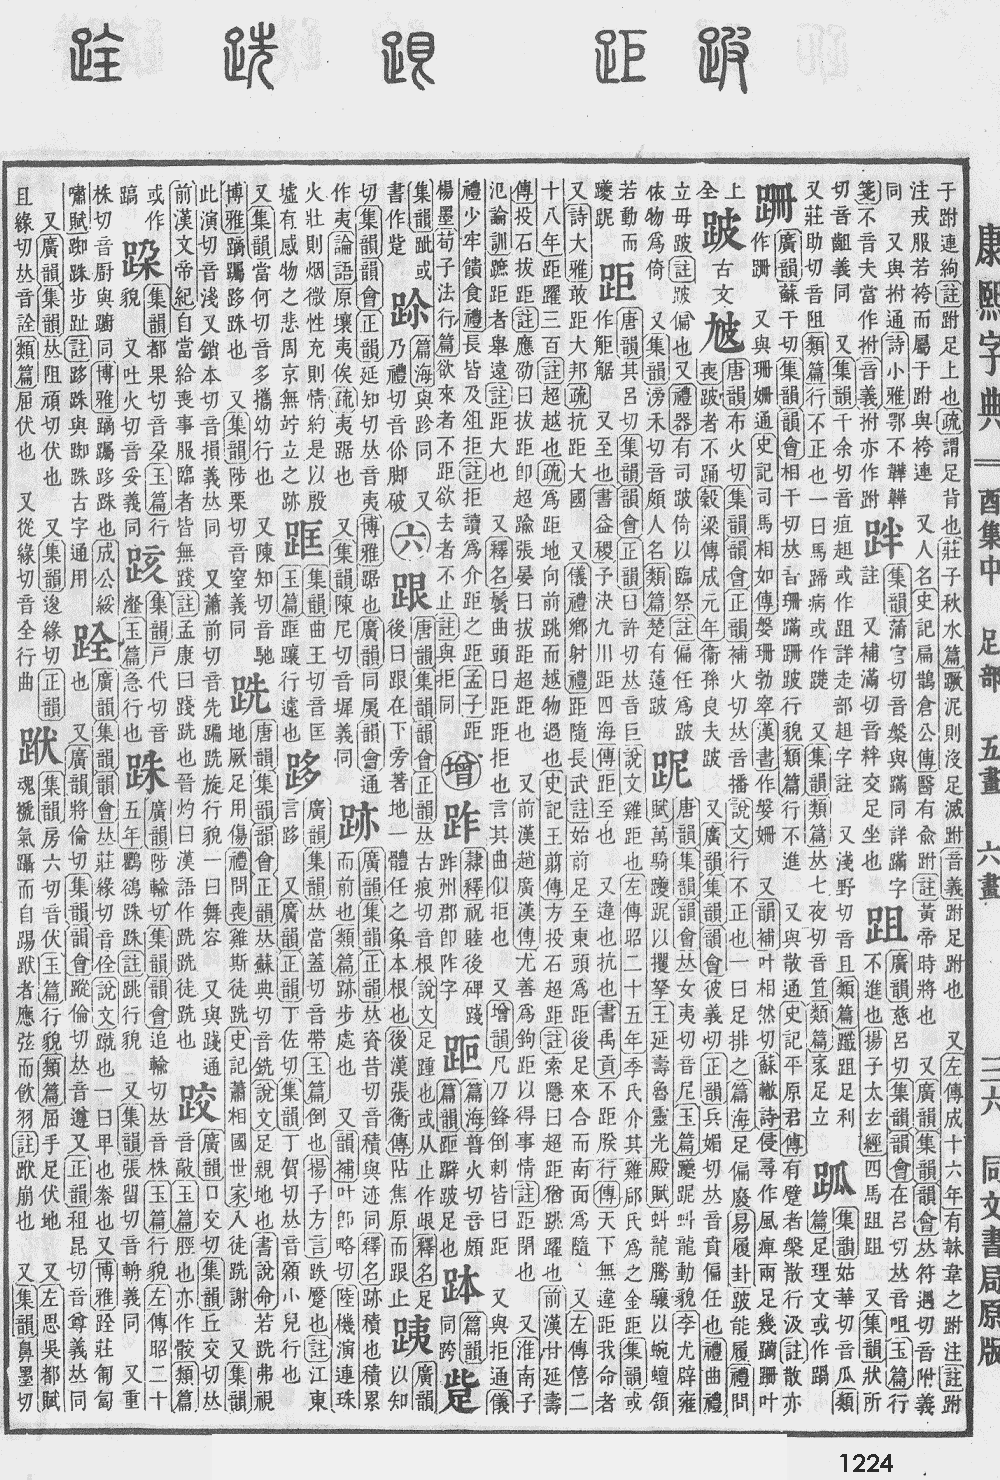 康熙字典 酉集中 足部 五畫 六畫 三六 同文書局原版
于跗連絇註跗足上也疏謂足背也莊子秋水篇蹶泥則沒足滅跗音義跗足跗也 又左傳成十六年有韎韋之跗注註跗
注戎服若袴而屬于跗與袴連 又人名史記扁鵲倉公傳醫有俞跗註黃帝時將也 又廣韻集韻韻會𠀤符遇切音附義
同 又與拊通詩小雅鄂不韡韡
箋不音夫當作拊音義拊亦作跗
跘 集韻蒲官切音槃與蹣同詳蹣字
註 又補滿切音粄交足坐也
跙 廣韻慈呂切集韻韻會在呂切𠀤音咀玉篇行
不進也揚子太玄經四馬跙跙 又集韻狀所
切音齟義同 又集韻千余切音疽趄或作跙詳走部趄字註 又淺野切音且類篇躐跙足利
又莊助切音阻類篇行不正也一曰馬蹄病或作 又集韻類篇𠀤七夜切音笡類篇衺足立
集韻姑華切音瓜類
篇足理文或作踻
跚 廣韻蘇干切集韻韻會相干切𠀤音珊蹣跚跛行貌類篇行不進 又與散通史記平原君傳有躄者槃散行汲註散亦
作跚 又與珊姍通史記司馬相如傳媻珊勃窣漢書作媻姍 又韻補叶相然切蘇轍詩侵尋作風痺兩足幾蹣跚叶
上全
跛 古文𡯁 唐韻布火切集韻韻會正韻補火切𠀤音播說文行不正也一曰足排之篇海足偏廢易履卦跛能履禮問
喪跛者不踊穀梁傳成元年衞孫良夫跛 又廣韻集韻韻會彼義切正韻兵媚切𠀤音賁偏任也禮曲禮
立毋跛註跛偏也又禮器有司跛倚以臨祭註偏任爲跛
依物爲倚 又集韻滂禾切音頗人名類篇楚有薳跛
跜 唐韻集韻韻會𠀤女夷切音尼玉篇躨跜虯龍動貌李尤辟雍
賦萬騎躨跜以攫拏王延壽魯靈光殿賦虯龍騰驤以蜿蟺頷
若動而
躨跜
距 唐韻其呂切集韻韻會正韻臼許切𠀤音巨說文雞距也左傳昭二十五年季氏介其雞郈氏爲之金距集韻或
作䶙𧣒 又至也書益稷予決九川距四海傳距至也 又違也抗也書禹貢不距朕行傳天下無違距我命者
又詩大雅敢距大邦疏抗距大國 又儀禮鄕射禮距隨長武註始前足至東頭爲距後足來合而南面爲隨 又左傳僖二
十八年距躍三百註超越也疏爲距地向前跳而越物過也史記王翦傳方投石超距註索隱曰超距猶跳躍也前漢甘延壽
傳投石拔距註應劭曰拔距卽超踰張晏曰拔距超距也 又前漢趙廣漢傳尤善爲鉤距以得事情註距閉也 又淮南子
氾論訓蹠距者舉遠註距大也 又釋名鬢曲頭曰距距拒也言其曲似拒也 又增韻凡刀鋒倒刺皆曰距 又與拒通儀
禮少牢饋食禮長皆及俎拒註拒讀爲介距之距孟子距
楊墨荀子法行篇欲來者不距欲去者不止註與拒同
增
跓 隸釋祝睦後碑踐
跓州郡卽阼字
篇海普火切音頗
篇韻距躃跛足也
䟛 篇韻
同跨
集韻䟣或
書作
跈 篇海與跈同 又
乃禮切音伱腳破
六
跟 唐韻集韻韻會正韻𠀤古痕切音根說文足踵也或从止作䟴釋名足
後曰跟在下旁著地一體任之象本根也後漢張衡傳阽焦原而跟止
跠 廣韻
以知
切集韻韻會正韻延知切𠀤音夷博雅踞也廣韻同𡰥韻會通
作夷論語原壤夷俟疏夷踞也 又集韻陳尼切音墀義同
跡 廣韻集韻正韻𠀤資昔切音積與迹同釋名跡積也積累
而前也類篇跡步處也 又韻補叶卽略切陸機演連珠
火壯則烟微性充則情約是以殷
墟有感物之悲周京無竚立之跡
䟫 集韻曲王切音匡
玉篇䟫躟行遽也
跢 廣韻集韻𠀤當蓋切音帶玉篇倒也揚子方言跌蹷也註江東
言跢 又廣韻正韻丁佐切集韻丁賀切𠀤音癉小兒行也
又集韻當何切音多攜幼行也 又陳知切音馳
博雅躊躅跢跦也 又集韻陟栗切音窒義同
跣 唐韻集韻韻會正韻𠀤蘇典切音銑說文足親地也書說命若跣弗視
地厥足用傷禮問喪雞斯徒跣史記蕭相國世家入徒跣謝 又集韻
此演切音淺又鎖本切音損義𠀤同 又蕭前切音先蹁跣旋行貌一曰舞容 又與踐通
前漢文帝紀自當給喪事服臨者皆無踐註孟康曰踐跣也晉灼曰漢語作跣跣徒跣也
跤 廣韻口交切集韻丘交切𠀤
音敲玉篇脛也亦作骹類篇
或作
跺 集韻都果切音朵玉篇行
貌 又吐火切音妥義同
䟸 集韻戶代切音
瀣玉篇急行也
跦 廣韻陟輸切集韻韻會追輸切𠀤音株玉篇行貌左傳昭二十
五年鸜鵒跦跦註跳行貌 又集韻張留切音輈義同 又重
株切音廚與躕同博雅蹢躅跢跦也成公綏
嘯賦踟跦步趾註跢跦與踟跦古字通用
跧 廣韻集韻韻會𠀤莊緣切音佺說文蹴也一曰卑也絭也又博雅跧莊匍匐
也 又廣韻將倫切集韻韻會蹤倫切𠀤音遵又正韻租昆切音尊義𠀤同
又廣韻集韻𠀤阻頑切伏也 又集韻逡緣切 又左思吳都賦
且緣切𠀤音詮類篇屈伏也 又從緣切音全行曲 正韻
䟮 集韻房六切音伏玉篇行貌類篇屈手足伏地
魂褫氣躡而自踢䟮者應弦而飮羽註䟮崩也 又集韻鼻墨切
1224